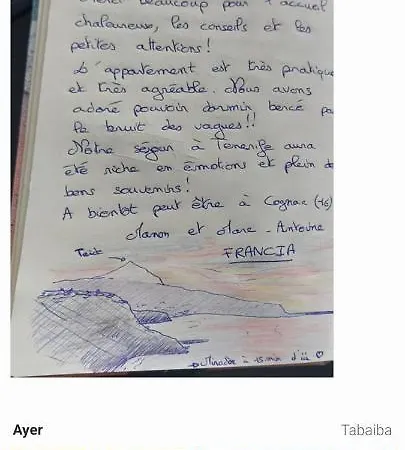 beaucoup pour l'accueil
chaleureux, les conseils et les
petites attentions!
L'appartement est très pratique
et très agréable. Nous avons
adoré pouvoir dormir bercé pa
le bruit des vagues!!
Notre séjour à Tenerife aura
été riche en émotions et plein de
bons souvenirs!
A bientôt peut être à Cognac (16)
Manon et Marc-Antoine
FRANCIA
Teide
Mirador à 15 min d'ici ♡
Ayer
Tabaiba